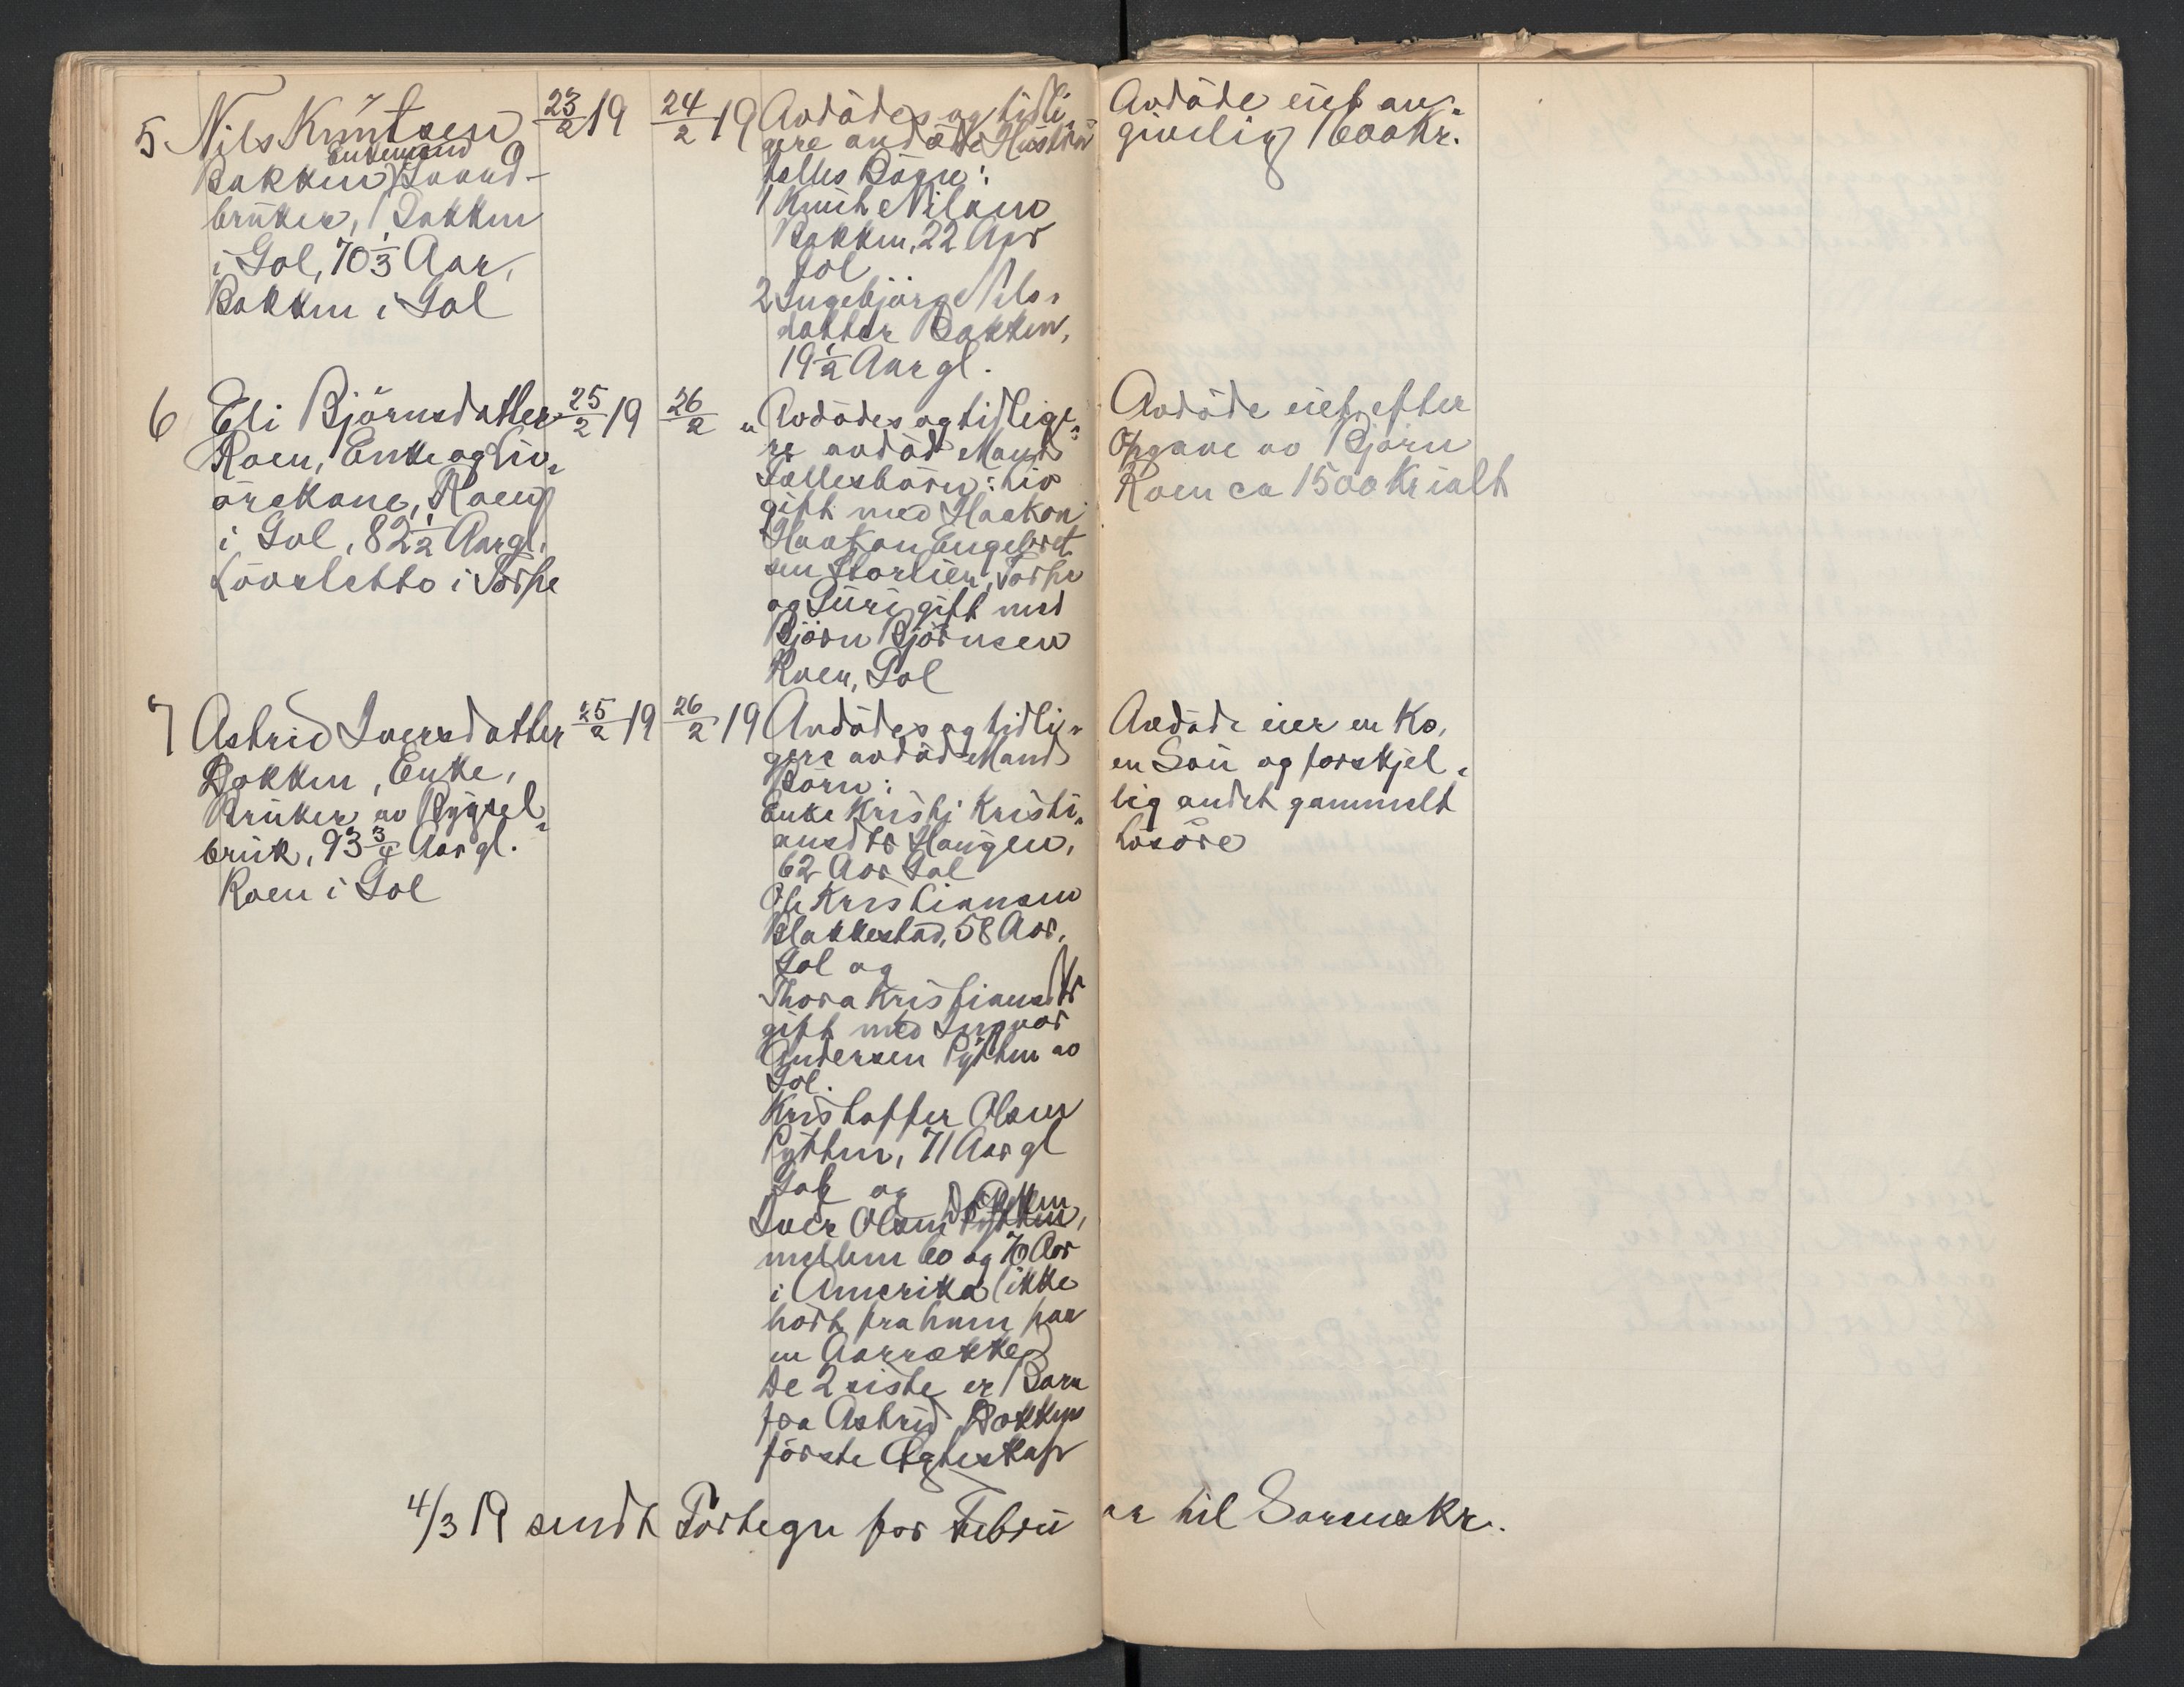 5 Nils Knutsen 23/2 19 24/2 19
Enkemand
Bakken, Gaard-
bruker, Bakken
i Gol, 70 1/3 Aar,
Bakken i Gol
Avdødes og tidli-
gere avdøde Hustru
felles Børn:
1 Knut Nilsen
Bakken, 22 Aar
Gol
2 Ingebjørg Nils-
datter Bakken,
19 1/2 Aar gl.
Avdøde eiet an-
givelig 1600 Kr.
6 Eli Bjørnsdatter 25/2 19 26/2 "
Roen, Enke og Liv-
ørekone, Roen
i Gol, 82 1/2 Aar gl.
Løvsletto i Torpe
Avdødes og tidlige-
re avdød Mands
Fellesbørn: Liv
gift med Haakon
Haakon Engebret
sen Storlien, Torpe
og Guri gift med
Bjørn Bjørnsen
Roen, Gol
Avdøde eiet efter
Opgave av Bjørn
Roen ca 1500 Kr ialt
7 Astrid Iversdatter 25/2 19 26/2 19
Dokken, Enke,
Bruker av Bygsel-
bruk, 93 3/4 Aar gl.
Roen i Gol
Avdødes og tidli-
gere avdød Mands
Børn:
Enke Kristi Kristi-
ansdtr Haugen,
62 Aar Gol
Ole Kristiansen
Blakkestad, 58 Aar,
Gol og
Thora Kristiansdtr
gift med Ingvar
Andersen Pytten av
Gol.
Kristoffer Olsen
Pytten, 71 Aar gl
Gol og
Dokken
Iver Olsen Pytten,
mellem 60 og 70 Aar
i Amerika (ikke
hørt fra ham paa
en Aarrække)
De 2 siste er Barn
fra Astrid Dokkens
første Ægteskap
Avdøde eier en Ko,
en Sau og forskjel-
lig andet gammelt
Løsøre
4/3 19 sendt Fortegn for Februar til Sorenskr.